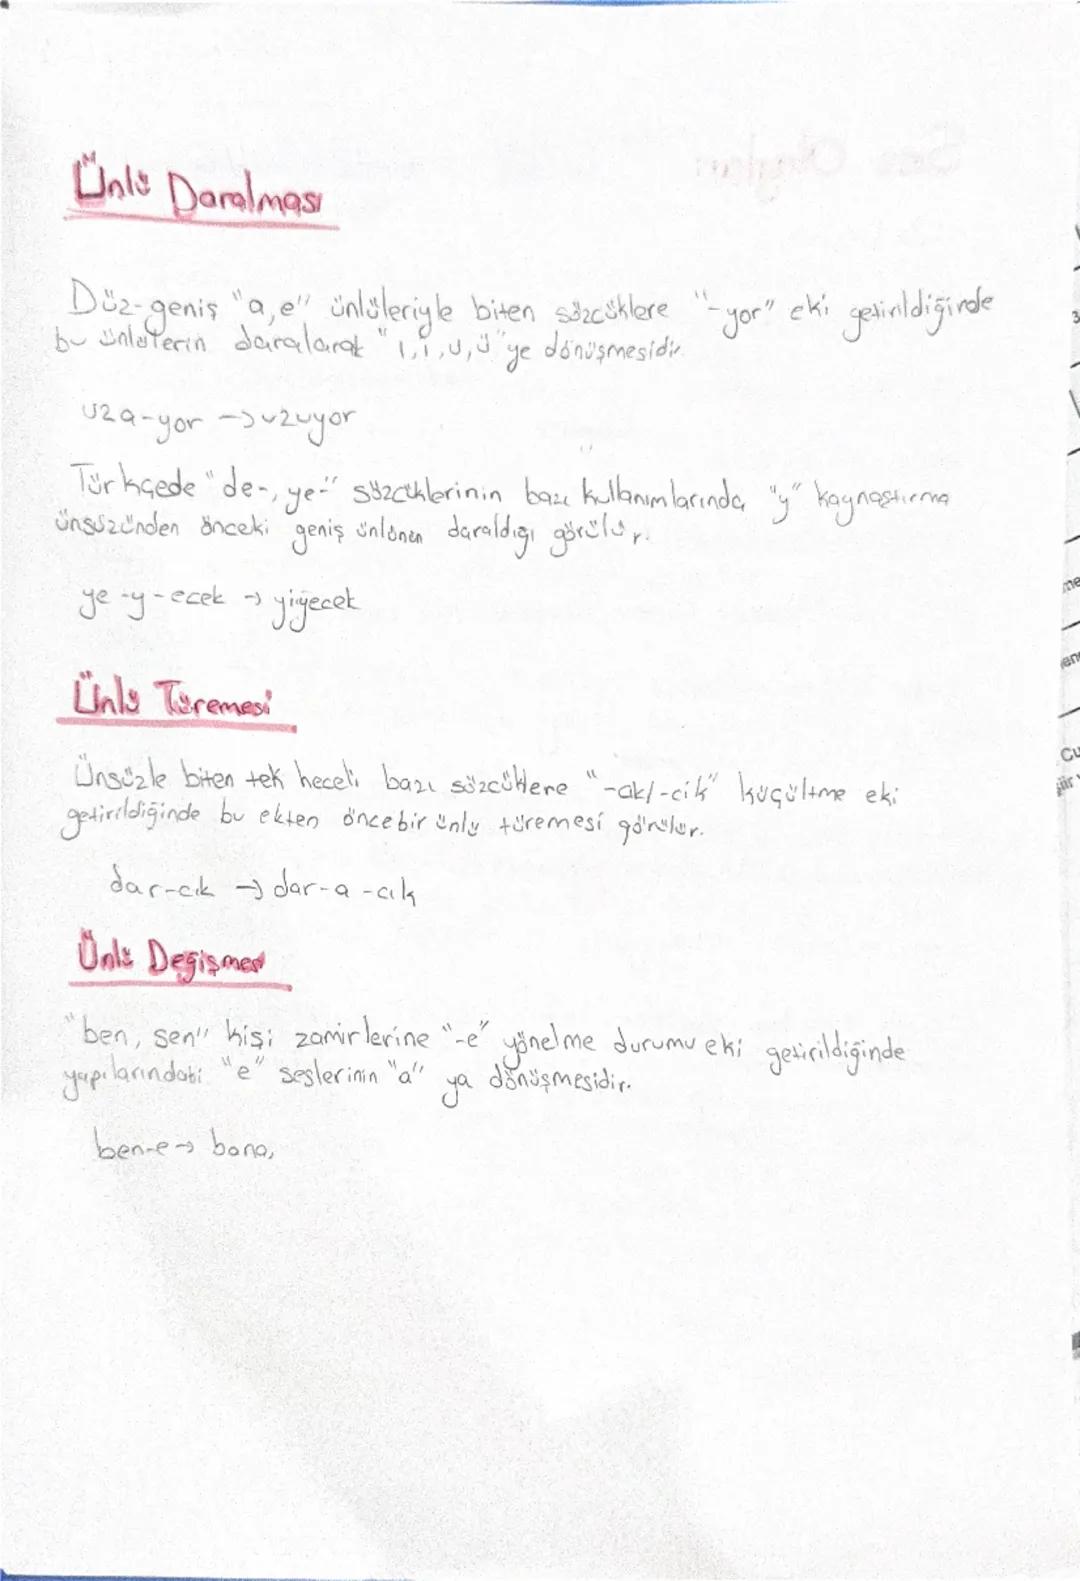 Ünlü Daralması
Düz-geniş "a,e" ünlüleriyle biten sözcüklere "-yor" eki getirildiğinde
bu ünlülerin daralarak "ı,i,u,ü" ye dönüşmesidir.
uza-yor → uzuyor
Türkçede "de-, ye-" sözcüklerinin bazı kullanımlarında "y" kaynaştırma
ünsüzünden önceki geniş ünlünün daraldığı görülür.
ye-y-ecek → yiyecek
Ünlü Türemesi
Ünsüzle biten tek heceli bazı sözcüklere "-cık/-cik" küçültme eki
getirildiğinde bu ekten önce bir ünlü türemesi görülür.
dar-cık → dar-a-cık
Ünlü Değişmesi
"ben, sen" kişi zamirlerine "-e" yönelme durumu eki getirildiğinde
yapılarındaki "e" seslerinin "a" ya dönüşmesidir.
ben-e → bana,